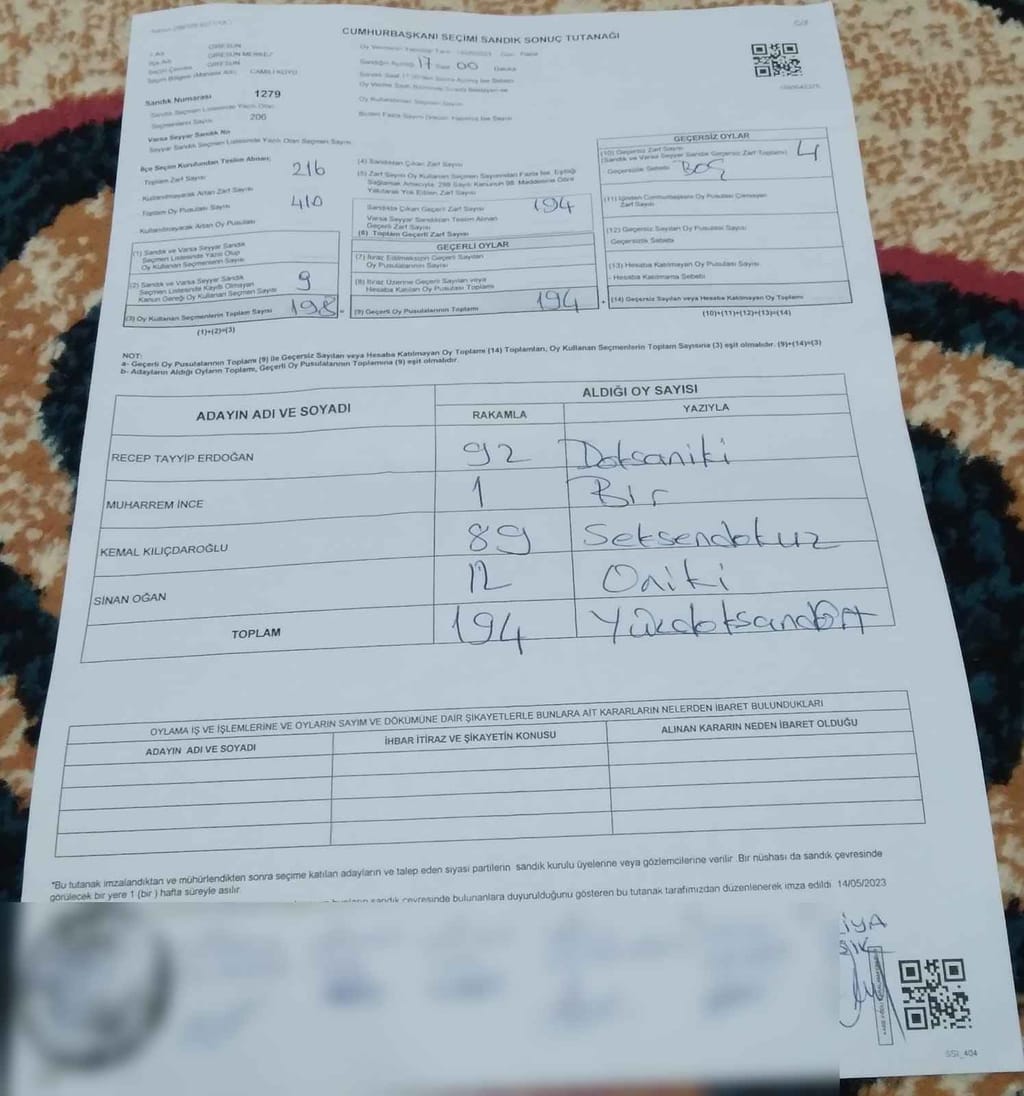 CUMHURBAŞKANI SEÇİMİ SANDIK SONUÇ TUTANAĞI
GİRESUN
GİRESUN MERKEZ
GİRESUN
CAMİLİ KÖYÜ
17 00
Sandık Numarası 1279
206
Varsa Seyyar Sandık No
Seyyar Sandık Seçmen Listesinde Yazılı Olan Seçmen Sayısı
İlçe Seçim Kurulundan Teslim Alınan;
Toplam Zarf Sayısı 216
Kullanılmayarak Artan Zarf Sayısı
Toplam Oy Pusulası Sayısı 410
Kullanılmayarak Artan Oy Pusulası
(1) Sandık ve Varsa Seyyar Sandık
Seçmen Listesinde Yazılı Olup
Oy Kullanan Seçmenlerin Sayısı
(2) Sandık ve Varsa Seyyar Sandık
Seçmen Listesinde Kayıtlı Olmayan
Kanun Gereği Oy Kullanan Seçmen Sayısı 9
(3) Oy Kullanan Seçmenlerin Toplam Sayısı 198
(1)+(2)=(3)
(4) Sandıktan Çıkan Zarf Sayısı
(5) Zarf Sayısı Oy Kullanan Seçmen Sayısından Fazla ise, Eşitliği
Sağlamak Amacıyla; 298 Sayılı Kanunun 98. Maddesine Göre
Yakılarak Yok Edilen Zarf Sayısı
Sandıkta Çıkan Geçerli Zarf Sayısı 194
Varsa Seyyar Sandıktan Teslim Alınan
Geçerli Zarf Sayısı
(6) Toplam Geçerli Zarf Sayısı
GEÇERLİ OYLAR
(7) İtiraz Edilmeksizin Geçerli Sayılan
Oy Pusulalarının Sayısı
(8) İtiraz Üzerine Geçerli Sayılan veya
Hesaba Katılan Oy Pusulası Toplamı
(9) Geçerli Oy Pusulalarının Toplamı 194
GEÇERSİZ OYLAR
(10) Geçersiz Zarf Sayısı
(Sandık ve Varsa Seyyar Sandık Geçersiz Zarf Toplamı) 4
Geçersizlik Sebebi BOŞ
(11) İçinden Cumhurbaşkanı Oy Pusulası Çıkmayan
Zarf Sayısı
(12) Geçersiz Sayılan Oy Pusulası Sayısı
Geçersizlik Sebebi
(13) Hesaba Katılmayan Oy Pusulası Sayısı
Hesaba Katılmama Sebebi
(14) Geçersiz Sayılan veya Hesaba Katılmayan Oy Pusulası Toplamı
(10)+(11)+(12)+(13)=(14)
NOT:
a- Geçerli Oy Pusulalarının Toplamı (9) ile Geçersiz Sayılan veya Hesaba Katılmayan Oy Toplamı (14) Toplamları, Oy Kullanan Seçmenlerin Toplam Sayısına (3) eşit olmalıdır. (9)+(14)=(3)
b- Adayların Aldığı Oyların Toplamı, Geçerli Oy Pusulalarının Toplamına (9) eşit olmalıdır.
ADAYIN ADI VE SOYADI
ALDIĞI OY SAYISI
RAKAMLA YAZIYLA
RECEP TAYYİP ERDOĞAN 92 Doksaniki
MUHARREM İNCE 1 Bir
KEMAL KILIÇDAROĞLU 89 Seksendokuz
SİNAN OĞAN 12 Oniki
TOPLAM 194 Yüzdoksandört
OYLAMA İŞ VE İŞLEMLERİNE VE OYLARIN SAYIM VE DÖKÜMÜNE DAİR ŞİKAYETLERLE BUNLARA AİT KARARLARIN NELERDEN İBARET BULUNDUKLARI
ADAYIN ADI VE SOYADI İHBAR İTİRAZ VE ŞİKAYETİN KONUSU ALINAN KARARIN NEDEN İBARET OLDUĞU
*Bu tutanak imzalandıktan ve mühürlendikten sonra seçime katılan adayların ve talep eden siyasi partilerin sandık kurulu üyelerine veya gözlemcilerine verilir. Bir nüshası da sandık çevresinde
görülecek bir yere 1 (bir ) hafta süreyle asılır.
sandık çevresinde bulunanlara duyurulduğunu gösteren bu tutanak tarafımızdan düzenlenerek imza edildi. 14/05/2023
SSI_404